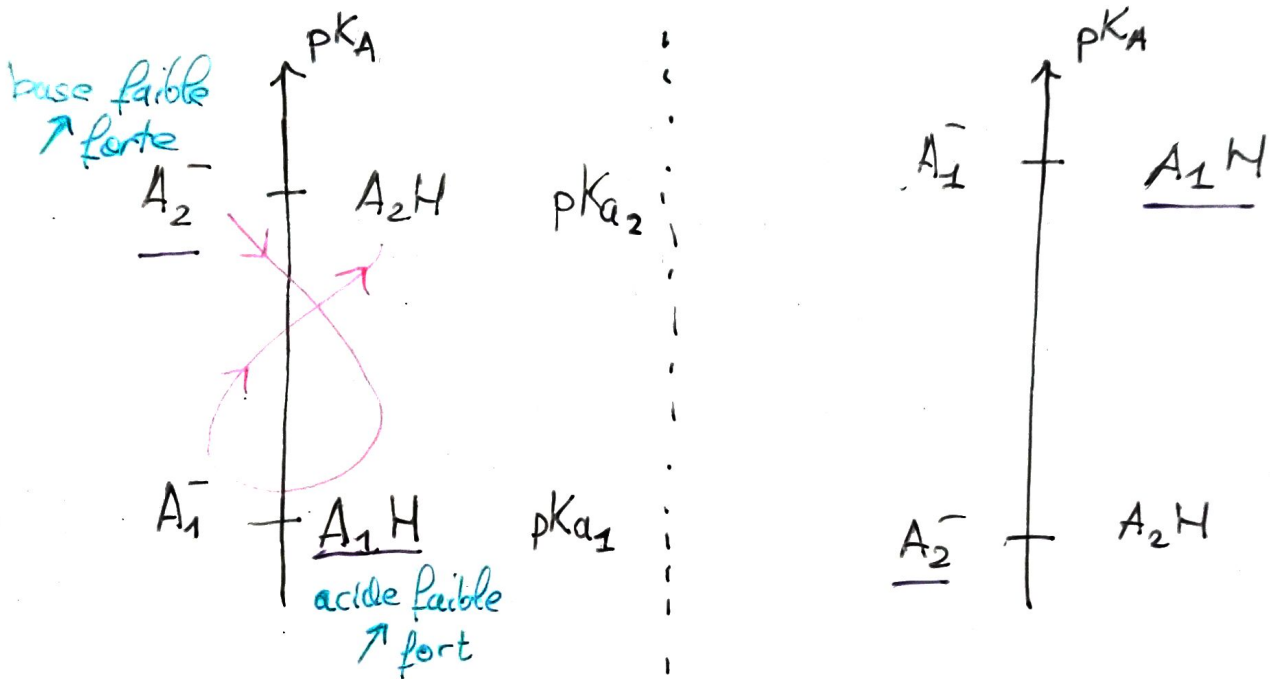 pKA
base faible
↗ forte
A2⁻ A2H pKa2
A1⁻ A1H pKa1
acide faible
↗ fort
pKA
A1⁻ A1H
A2⁻ A2H